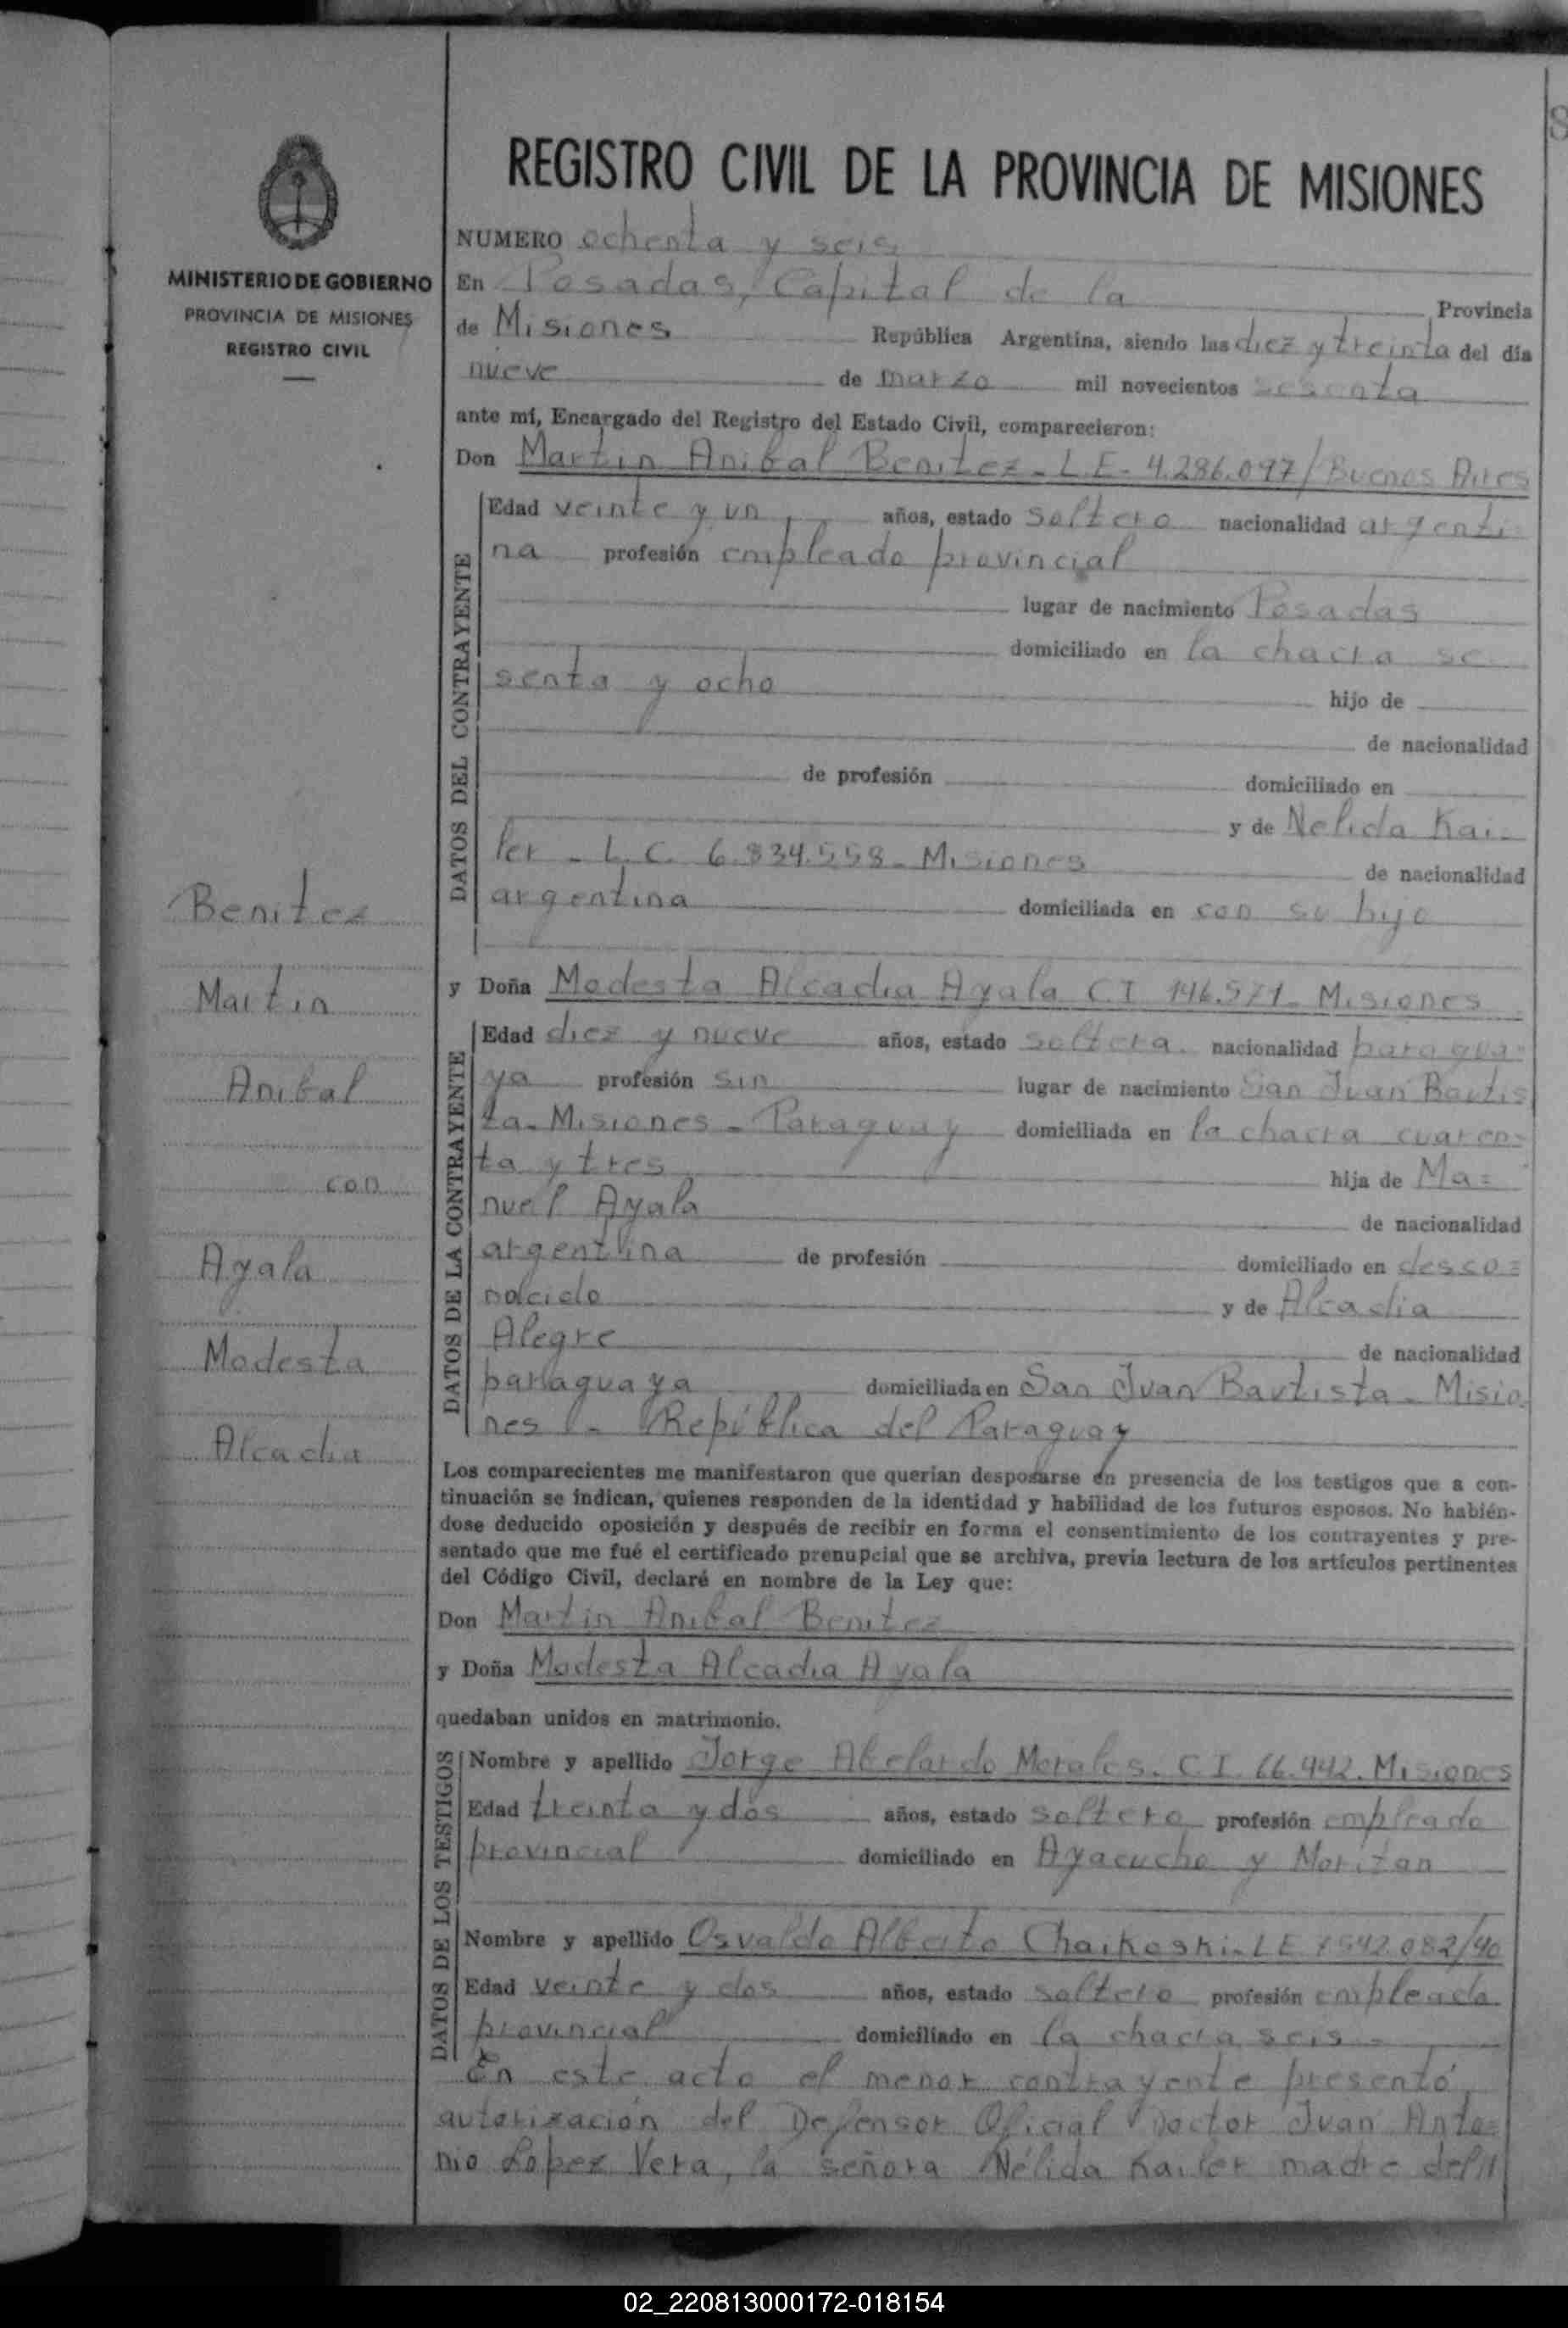 MINISTERIO DE GOBIERNO
PROVINCIA DE MISIONES
REGISTRO CIVIL
Benitez
Martin
Anibal
con
Ayala
Modesta
Alcadia
REGISTRO CIVIL DE LA PROVINCIA DE MISIONES
NUMERO ochenta y seis
En Posadas, Capital de la Provincia
de Misiones República Argentina, siendo las diez y treinta del día
nueve de marzo mil novecientos sesenta
ante mí, Encargado del Registro del Estado Civil, comparecieron:
Don Martin Anibal Benitez - L.E. 4.286.097/Buenos Aires
DATOS DEL CONTRAYENTE
Edad veinte y un años, estado soltero nacionalidad argenti-
na profesión empleado provincial
lugar de nacimiento Posadas
domiciliado en la chacra se
senta y ocho hijo de
de nacionalidad
de profesión domiciliado en
y de Nelida Kai-
ler - L.C. 6.834.558 - Misiones de nacionalidad
argentina domiciliada en con su hijo
y Doña Modesta Alcadia Ayala C.I 146.571 - Misiones
DATOS DE LA CONTRAYENTE
Edad diez y nueve años, estado soltera. nacionalidad paragua-
ya profesión sin lugar de nacimiento San Juan Bautis
ta - Misiones - Paraguay domiciliada en la chacra cuaren-
ta y tres hija de Ma=
nuel Ayala de nacionalidad
argentina de profesión domiciliado en desco=
nocido y de Alcadia
Alegre de nacionalidad
paraguaya domiciliada en San Juan Bautista - Misio-
nes - República del Paraguay
Los comparecientes me manifestaron que querían desposarse en presencia de los testigos que a con-
tinuación se indican, quienes responden de la identidad y habilidad de los futuros esposos. No habién-
dose deducido oposición y después de recibir en forma el consentimiento de los contrayentes y pre-
sentado que me fué el certificado prenupcial que se archiva, previa lectura de los artículos pertinentes
del Código Civil, declaré en nombre de la Ley que:
Don Martin Anibal Benitez
y Doña Modesta Alcadia Ayala
quedaban unidos en matrimonio.
DATOS DE LOS TESTIGOS
Nombre y apellido Jorge Abelardo Morales. C.I. 66.442. Misiones
Edad treinta y dos años, estado soltero profesión empleado
provincial domiciliado en Ayacucho y Moritan
Nombre y apellido Osvaldo Alberto Chaikoski - L E 7542.082/40
Edad veinte y dos años, estado soltero profesión empleado
provincial domiciliado en la chacra seis -
En este acto el menor contrayente presentó
autorización del Defensor Oficial Doctor Juan Anto=
nio Lopez Vera, la señora Nélida Kailer madre del
02_220813000172-018154